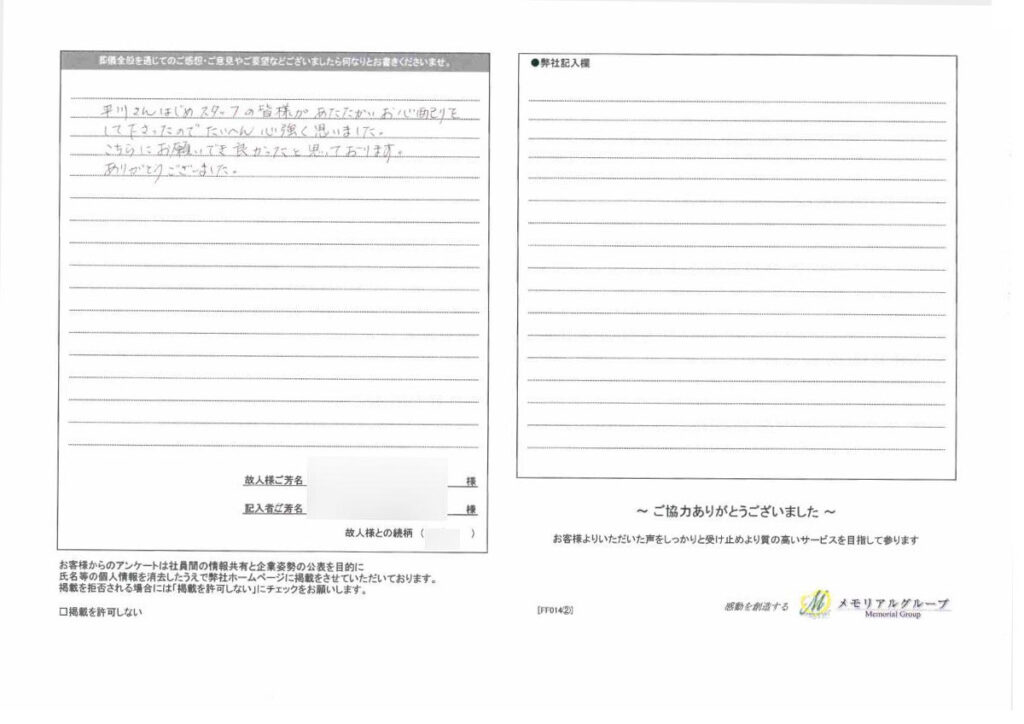 葬儀全般を通じてのご感想・ご意見やご要望などございましたら何なりとお書きくださいませ。
平川さんはじめスタッフの皆様があたたかいお心配りを
して下さったのでたいへん心強く思いました。
こちらにお願いでき良かったと思っております。
ありがとうございました。
故人様ご芳名 様
記入者ご芳名 様
故人様との続柄 ( )
お客様からのアンケートは社員間の情報共有と企業姿勢の公表を目的に
氏名等の個人情報を消去したうえで弊社ホームページに掲載をさせていただいております。
掲載を拒否される場合には「掲載を許可しない」にチェックをお願いします。
□掲載を許可しない
●弊社記入欄
～ ご協力ありがとうございました ～
お客様よりいただいた声をしっかりと受け止めより質の高いサービスを目指して参ります
[FF014②]
感動を創造する
M メモリアルグループ
Memorial Group